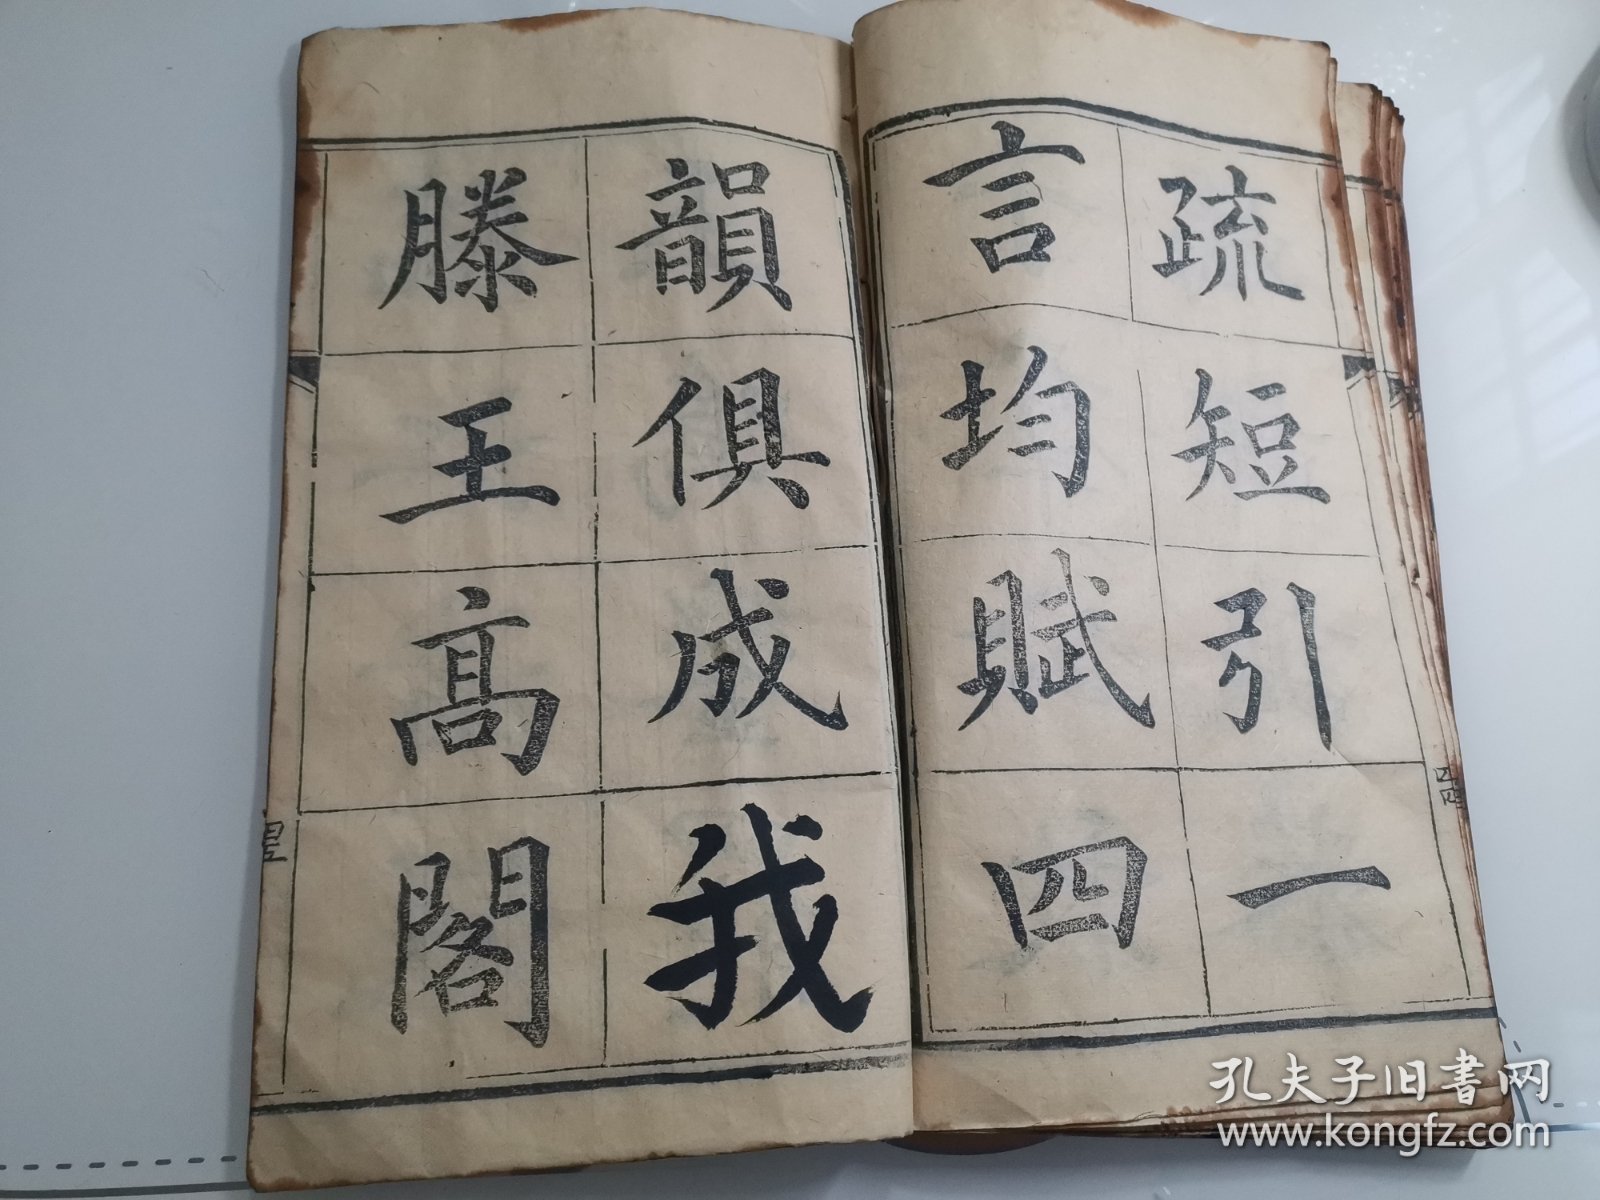 疏短引一
言均賦四
韻俱成我
滕王高閣
孔夫子旧書网
www.kongfz.com